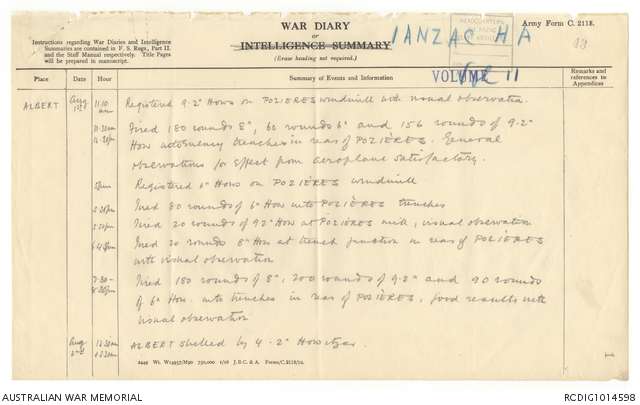 WAR DIARY
or
INTELLIGENCE SUMMARY
(Erase heading not required.)
Army Form C. 2118.
Instructions regarding War Diaries and Intelligence
Summaries are contained in F. S. Regs., Part II.
and the Staff Manual respectively. Title Pages
will be prepared in manuscript.
HEADQUARTERS
1 ANZAC H A
VOLUME 11
Place Date Hour Summary of Events and Information Remarks and references to Appendices
ALBERT Aug 1st 11.10 am Registered 9.2" Hows on POZIERES windmill with visual observation.
Fired 180 rounds 8", 60 rounds 6" and 156 rounds of 9.2"
How trenches in rear of POZIERES. General
observations for effect from aeroplane satisfactory.
Registered 6" Hows on POZIÈRES windmill
Fired 80 rounds of 6" How into POZIÈRES trenches
Fired 20 rounds of 9.2" How at POZIÈRES mill, visual observation
Fired 20 rounds 8" How at trench junction in rear of POZIÈRES
with visual observation
7.30- Fired 180 rounds of 8", 200 rounds of 9.2" and 90 rounds
of 6" How. into trenches in rear of POZIÈRES, good results with
visual observation
Aug 2nd ALBERT shelled by 4.2" Howitzer.
2449 Wt. W14957/M90 750,000 1/16 J.B.C. & A. Forms/C.2118/12.
AUSTRALIAN WAR MEMORIAL
RCDIG1014598